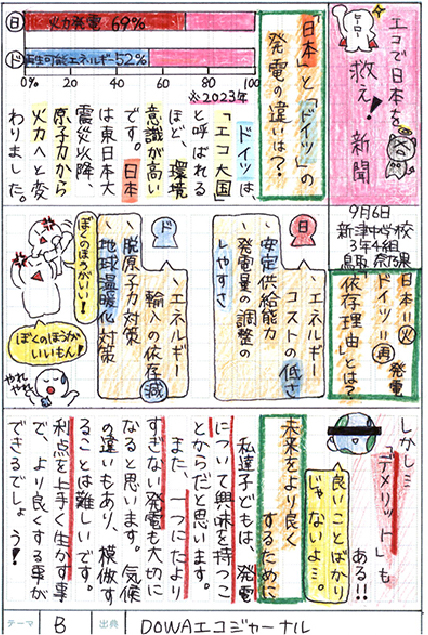 エコで日本を
救え！新聞
9月6日
新津中学校
3年4組
「日本」と「ドイツ」の
発電の違いは？
日 火力発電 69%
ド 再生可能エネルギー 52%
0% 20 40 60 80 100
※2023年
ドイツは、
「エコ大国」
と呼ばれる
ほど、環境
意識が高い
です。日本
は東日本大
震災以降、
原子力から
火力へと変
わりました。
日本＝火
ドイツ＝再 発電
「依存理由」とは？
日
、エネルギー
コストの低さ
、安定供給能力
、発電量の調整の
しやすさ
ド
、エネルギー
輸入の依存減
、脱原子力対策
、地球温暖化対策
ぼくのほうがいい！
ぼくのほうが
いいもん！
やれ
やれ
しかし…
「デメリット」も
ある!!
良いことばかり
じゃないよ…。
未来をより良く
するために
私達子どもは、発電
について興味を持つこ
とからだと思います。
また、一つにたより
すぎない発電も大切に
なると思います。気候
の違いもあり、模倣す
ることは難しいです。
利点を上手く生かす事
で、より良くする事が
できるでしょう！
テーマ B 出典 DOWAエコジャーナル